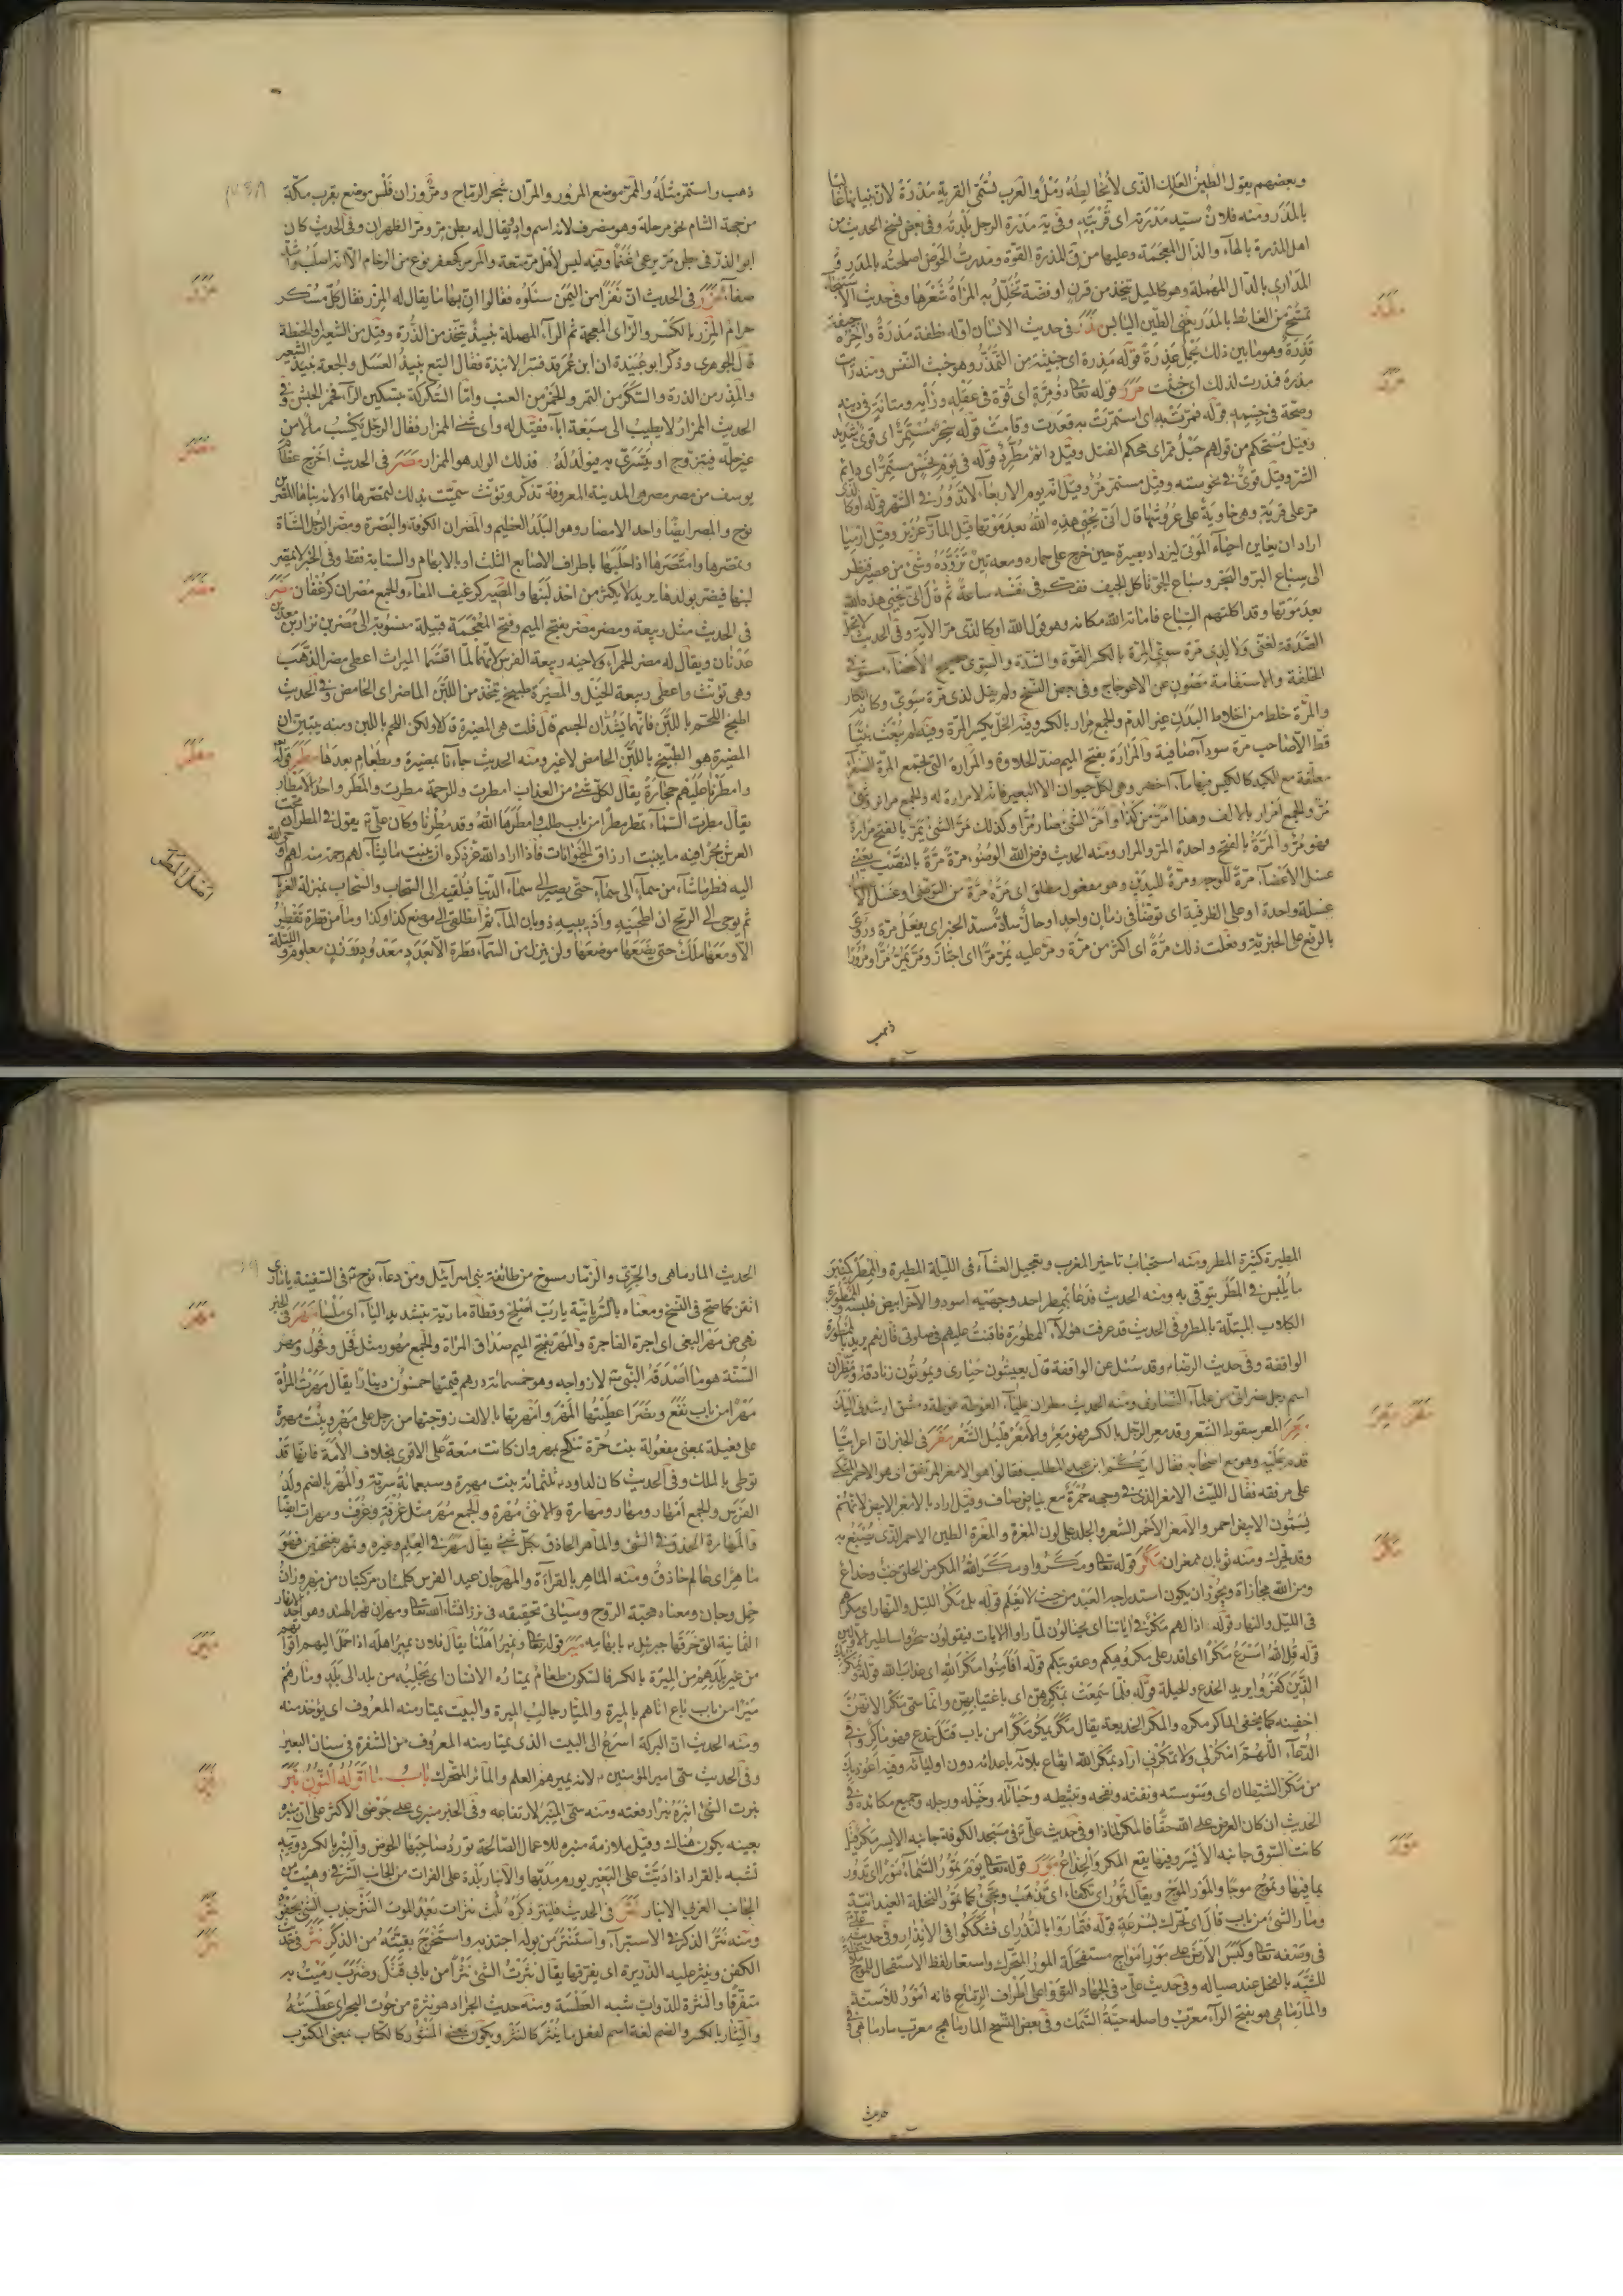 وبعضهم يقول الطين العلك الذى لا يخالطه رمل والعرب تسمى القرية مدرة لان بنيانها غالبا
بالمدر ومنه فلان سيد مدرته اى قريته وفيه مدرة الرجل بلدته وفى بعض نسخ الحديث من
اهل المذرة بالهاء والذال المعجمة ومدرت الحوض اصلحته بالمدر و
المدارى بالدال المهملة وهو كالميل يتخذ من قرن او فضة تخلل به المراة شعرها وفى حديث
من الغائط بالمدر يعنى الطين اليابس مذر فى حديث الانسان اوله نطفة مذرة واخره جيفة
قذرة وهو ما بين ذلك يحمل عذرة قوله مذرة اى خبيثة من التمذر وهو خبث النفس ومنه رايت
مذرة فمذرت لذلك اى خبثت مرر قوله تعالى ذو مرة اى قوة فى عقله ورايه ومتانة فى دينه
وصحة فى جسمه قوله فمرت به اى استمرت به فقعدت وقامت قوله سحر مستمر اى قوى شديد
وقيل مستحكم من قولهم حبل ممر اى محكم الفتل وقيل دائم مطرد قوله فى يوم نحس مستمر اى دائم
الشر وقيل قوى فى نحوسته وقيل مستمر مر وقيل انه يوم الاربعاء لا تدور فى الشهر قوله او كالذى
مر على قرية وهى خاوية على عروشها قال انى يحيى هذه الله بعد موتها قيل المار عزير وقيل ارميا
اراد ان يعاين احياء الموتى ليزداد بصيرة حين خرج على حماره ومعه تين تزوده وشئ من عصير فنظر
الى سباع البر والبحر وسباع الجو تاكل الجيف ففكر فى نفسه ساعة ثم قال انى يحيى هذه الله
بعد موتها وقد اكلتهم السباع فاماته الله مكانه وهو قول الله او كالذى مر الآية وفى الحديث لا تحل
الصدقة لغنى ولا لذى مرة سوى المرة بالكسر القوة والشدة والسوى صحيح الاعضاء مستوى
الخلقة والاستقامة مصون عن الاعوجاج وفى بعض النسخ ولم يقل لذى مرة سوى
والمرة خلط من اخلاط البدن غير الدم والجمع مرار بالكسر وفيه الخل يكسر المرة وفيه لم يبعث نبيا
قط الا صاحب مرة سوداء صافية والمرارة بفتح الميم ضد الحلاوة والمرارة التى تجمع المرة الصفراء
معلقة مع الكبد كالكيس فيها ماء اخضر وهى لكل حيوان الا البعير فانه لا مرارة له والجمع مراير وشئ
مر والجمع امرار بالالف وهذا امر من كذا وامر الشئ صار مرا وكذلك مر الشئ يمر بالفتح مرارة
فهو مر والمرة بالفتح واحدة المر والمرار ومنه الحديث فرض الله الوضوء مرة مرة بالنصب يعنى
غسل الاعضاء مرة للوجه ومرة لليدين وهو مفعول مطلق اى مرة مرة من التوضى او غسل الاعضاء
غسلة واحدة او على الظرفية اى توضأ فى زمان واحد او حال ساد مسد الخبر اى يفعل مرة وروى
بالرفع على الخبرية وفعلت ذلك مرة اى اكثر من مرة ومر عليه يمر مرا اى اجتاز ومر يمر مرا ومرورا
ذهب
ذهب واستمر مثله والممر موضع المرور والمران شجر الرماح ومر وزان فلس موضع بقرب مكة
من جهة الشام نحو مرحلة وهو منصرف لانه اسم واد ويقال له بطن مر ومر الظهران وفى الحديث كان
ابو الذر فى بطن مر يرعى غنما وفيه ليس لأهل مر متعة والمرمر كجعفر نوع من الرخام الا انه اصلب واشد
صفاء مزر فى الحديث ان نفرا من اليمن سئلوه فقالوا ان بها ما يقال له المزر فقال كل مسكر
حرام المزر بالكسر والزاى المعجمة ثم الراء المهملة نبيذ يتخذ من الذرة وقيل من الشعير او الحنطة
قال الجوهرى وذكر ابو عبيدة ان ابن عمر قد فسر الانبذة فقال البتع نبيذ العسل والجعة نبيذ الشعير
والمزر من الذرة والسكر من التمر والخمر من العنب واما السكركة بتسكين الراء فخمر الحبش وفى
الحديث الممزار لا يطيب الى سبعة اباء فقيل له واى شئ الممزار فقال الرجل يكسب مالا من
غير حله فيتزوج او يتسرى به فيولد له فذلك الولد هو الممزار مصر فى الحديث اخرج عظام
يوسف من مصر مصر هى المدينة المعروفة تذكر وتؤنث سميت بذلك لتمصرها او لانه بناها المصر بن
نوح والمصر ايضا واحد الامصار وهو البلد العظيم والمصران الكوفة والبصرة ومصر الرجل الشاة
وتمصرها وامتصرها اذا حلبها باطراف الاصابع الثلث او بالابهام والسبابة فقط وفى الخبر لا يمصر
لبنها فيضر بولدها يريد لا يكثر من اخذ لبنها والمصير كرغيف المعاء والجمع مصران كرغفان مضر
فى الحديث مثل ربيعة ومضر مضر بفتح الميم وفتح المعجمة قبيلة منسوبة الى مضر بن نزار بن معد بن
عدنان ويقال له مضر الحمراء ولاخيه ربيعة الفرس لانهما لما اقتسما الميراث اعطى مضر الذهب
وهى تؤنث واعطى ربيعة الخيل والمضيرة طبيخ يتخذ من اللبن الماضر اى الحامض وفى الحديث
اطبخ اللحم باللبن فانهما يشدان الجسم قال قلت هى المضيرة قال لا ولكن اللحم باللبن ومنه يتبين ان
المضيرة هو الطبيخ باللبن الحامض لا غير ومنه الحديث جاءنا بمضيرة وبطعام بعدها مطر قوله
وامطرنا عليهم حجارة يقال لكل شئ من العذاب امطرت وللرحمة مطرت والمطر واحد الامطار
يقال مطرت السماء تمطر مطرا من باب طلب وامطرها الله وقد مطرنا وكان على ع يقول فى المطر ان تحت
العرش بحرا فيه ما ينبت ارزاق الحيوانات فاذا اراد الله عز ذكره ان ينبت ما يشاء لهم رحمة منه لهم اوحى الله
اليه فمطر ما شاء من سماء الى سماء حتى يصير الى سماء الدنيا فيلقيه الى السحاب والسحاب بمنزلة الغربال
ثم يوحى الى الريح ان اطحنيه واذيبيه ذوبان الماء ثم انطلقى الى موضع كذا وكذا وما من قطرة تقطر
الا ومعها ملك حتى يضعها موضعها ولن ينزل من السماء قطرة الا بعدد معدود ووزن معلوم والليلة
اصل المطر
المطيرة كثيرة المطر ومنه استحباب تاخير المغرب وتعجيل العشاء فى الليلة المطيرة والممطر كمنبر
ما يلبس فى المطر يتوقى به ومنه الحديث فدعا بممطر احد وجهيه اسود والاخر ابيض فلبسه والممطورة
الكلاب المبتلة بالمطر وفى الحديث قد عرفت هؤلاء الممطورة فاقنت عليهم فى صلوتى قال نعم يريد بالممطورة
الواقفة وفى حديث الرضا ع وقد سئل عن الواقفة قال يعيشون حيارى ويموتون زنادقة ومطران
اسم رجل نصرانى من علماء النصارى ومنه الحديث مطران علياء الغوطة غوطة دمشق ارشدنى اليك
معر المعر سقوط الشعر وقد معر الرجل بالكسر فهو معر والامعر قليل الشعر مغر فى الخبر ان اعرابيا
قدم عليه وهو مع اصحابه فقال ايكم ابن عبد المطلب فقالوا هو الامغر المرتفق اى هو الاحمر المتكى
على مرفقه فقال الليث الامغر الذى فى وجهه حمرة مع بياض صاف وقيل اراد بالامغر الابيض لانهم
يسمون الابيض احمر والامغر الاحمر الشعر والجلد على لون المغرة والمغرة الطين الاحمر الذى يصبغ به
وقد تحرك ومنه ثوبان ممغران مكر قوله تعالى ومكروا ومكر الله المكر من الخلق خب وخداع
ومن الله مجازاة ويجوز ان يكون استدراجه العبد من حيث لا يعلم قوله بل مكر الليل والنهار اى مكرهم
فى الليل والنهار قوله اذا لهم مكر فى اياتنا اى يحتالون لما راوا الايات فيقولون سحر واساطير الاولين
قوله قل الله اسرع مكرا اى اقدر على مكركم وعقوبتكم قوله افأمنوا مكر الله اى عذاب الله قوله ويمكر بك
الذين كفروا يريد الخدع والحيلة قوله فلما سمعت بمكرهن اى باغتيابهن وانما سمى مكرا لانهن
اخفينه كما يخفى الماكر مكره والمكر الخديعة يقال مكر يمكر مكرا من باب قتل خدع فهو ماكر وفى
الدعاء اللهم امكر لى ولا تمكر بى اراد بمكر الله ايقاع بلائه باعدائه دون اوليائه وفيه اعوذ بك
من مكر الشيطان اى وسوسته ونفثه ونفخه وتثبيطه وحبائله وخيله ورجله وجميع مكائده وفى
الحديث ان كان العرض على الله حقا فالمكر لماذا وفى حديث على ع فى مسجد الكوفة جانبه الايسر مكر قيل
كانت السوق جانبه الايسر وفيها يقع المكر والخداع مور قوله تعالى يوم تمور السماء مورا اى تدور
بما فيها وتموج موجا والمور الموج ويقال تمور اى تكفأ اى تذهب وتجئ كما تمور النخلة العيدانية
ومار الشئ من باب قال اى تحرك بسرعة قوله فتماروا بالنذر اى فشككوا فى الانذار وفى حديث على ع
فى وصفه تعالى وكبس الارض على مور امواج مستفحلة المور التحرك واستعار لفظ الاستفحال للموج
للشبه بالفحل عند صياله وفى حديث على ع فى الجهاد التووا على اطراف الرماح فانه امور للاسنة
والمارماهى هو بفتح الراء معرب واصله حية السمك وفى بعض النسخ المارماهيج معرب مارماهى وفى
حديث
الحديث المارماهى والجرى والزمار مسوخ من طائفة بنى اسرائيل ومن دعاء نوح ع فى السفينة يا مارى
اتقن كما صح فى النسخ ومعناه بالسريانية يا رب اصلح وقطاة مارية بتشديد الياء اى ملساء مهر فى الخبر
نهى عن مهر البغى اى اجرة الفاجرة والمهر بفتح الميم صداق المراة والجمع مهور مثل فحل وفحول ومهر
السنة هو ما اصدقه النبى ص لازواجه وهو خمسمائة درهم قيمتها خمسون دينارا يقال مهرت المراة
مهرا من باب نفع ونصر اعطيتها المهر وامهرتها بالالف زوجتها من رجل على مهر وبنت مهيرة
على فعيلة بمعنى مفعولة بنت حرة تنكح بمهر وان كانت متعة على الاقوى بخلاف الامة فانها قد
توطى بالملك وفى الحديث كان لداود ع ثلثمائة بنت مهيرة وسبعمائة سرية والمهر بالضم ولد
الفرس والجمع امهار ومهار ومهارة والانثى مهرة والجمع مهر مثل غرفة وغرف ومهرات ايضا
والمهارة الحذق فى الشئ والماهر الحاذق بكل شئ يقال مهر فى العلم وغيره يمهر بفتحتين فهو
ماهر اى عالم حاذق ومنه الماهر بالقراءة والمهرجان عيد الفرس كلمتان مركبتان من مهر وزان
حمل وجان ومعناه محبة الروح وسياتى تحقيقه فى نرز انشاء الله تعالى ومهران نهر الهند وهو احد الانهار
الثمانية التى خرقها جبرئيل ع بابهامه مير قوله تعالى ونمير اهلنا يقال فلان يمير اهله اذا حمل اليهم اقواتهم
من غير بلدهم من الميرة بالكسر فالسكون طعام يمتاره الانسان اى يجلبه من بلد الى بلد ومارهم
ميرا من باب باع اتاهم بالميرة والميار جالب الميرة والبيت يمتار منه المعروف اى يؤخذ منه
ومنه الحديث ان البركة اسرع الى البيت الذى يمتار منه المعروف من الشفرة فى سنان البعير
وفى الحديث سمى امير المؤمنين ع لانه يميرهم العلم والمائر المتحرك باب ما اوله النون نبر
نبرت الشئ انبره نبرا رفعته ومنه سمى المنبر لارتفاعه وفى الخبر منبرى على حوضى الاكثر على ان منبره
بعينه يكون هناك وقيل ملازمة منبره للاعمال الصالحة تورد صاحبها الحوض والنبر بالكسر دويبة
تشبه بالقراد اذا دبت على البعير يورم مدبها والانبار بلدة على الفرات من الجانب الشرقى وهيت من
الجانب الغربى الانبار نتر فى الحديث فلينتر ذكره ثلث نترات بعد الموت النتر جذب الشئ بجفوة
ومنه نتر الذكر فى الاستبراء واستنتر من بوله اجتذبه واستخرج بقيته من الذكر نثر فى حديث
الكفن وينثر عليه الذريرة اى يفرقها يقال نثرت الشئ نثرا من بابى قتل وضرب رميت به
متفرقا والنثرة للدواب شبه العطسة ومنه حديث الجراد هو نثرة من حوت البحر اى عطسته
والنثار بالكسر والضم لغة اسم لفعل ما ينثر كالنثر ويكون بمعنى المنثور كالكتاب بمعنى المكتوب